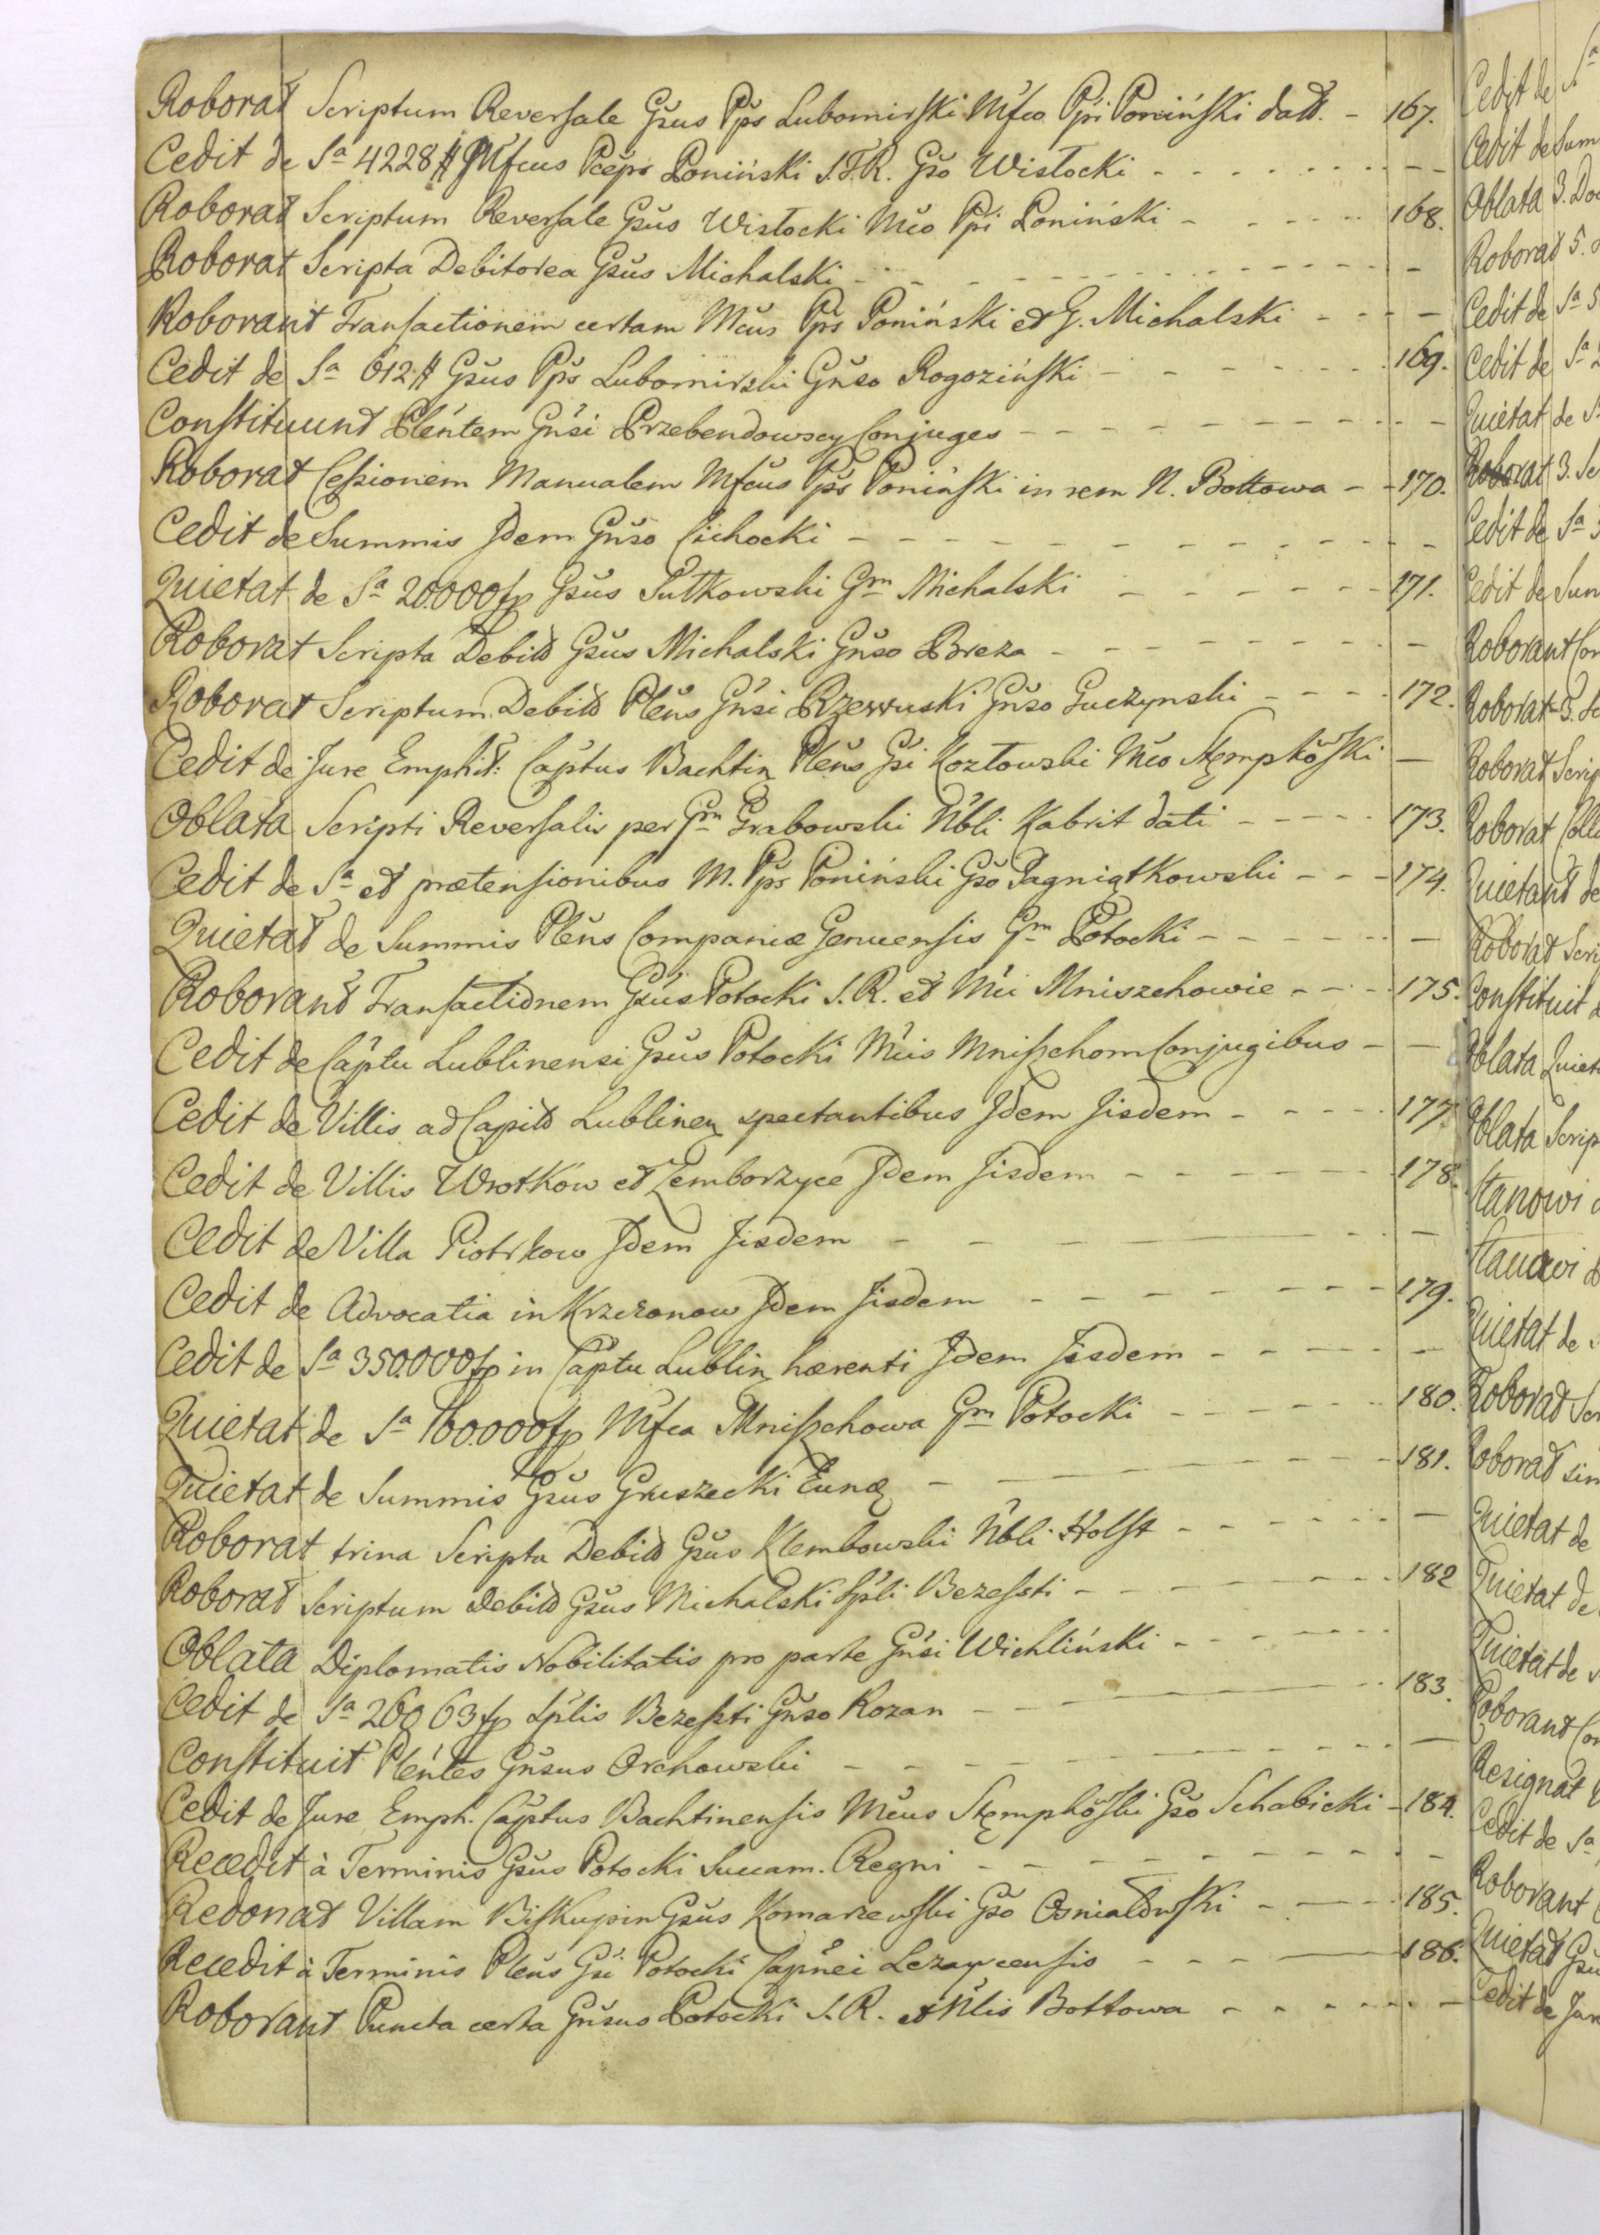 Roborat Scriptum Reversale Gsus Pps Lubomirski Mfco Ppi Poniński datt. - 167.
Cedit de Sa 4228 # Mfcus Pceps Poniński S.T.R. Gso Wisłocki - -
Roborat Scriptum Reversale Gsus Wisłocki Mco Ppi Poniński - 168.
Roborat Scripta Debitorea Gsus Michalski - -
Roborant Transactionem certam Mcus Pps Poniński et G. Michalski - -
Cedit de Sa 612 # Gsus Pps Lubomirski Gnso Rogoziński - 169.
Constituunt Plentem Gnsi Przebendowscy Conjuges - -
Roborat Cessionem Manualem Mfcus Pps Poniński in rem N. Bottowa - 170.
Cedit de Summis Jdem Gnso Cichocki - -
Quietat de Sa 20.000 fp Gsus Sułkowski Gm Michalski - 171.
Roborat Scripta Debitt Gsus Michalski Gnso Breza - -
Roborat Scriptum Debitt Plens Gnsi Rzewuski Gnso Guczynski - 172.
Cedit de Jure Emphit: Captus Bachtin Plens Gsi Kozłowski Mco Stempkoski -
Oblata Scripti Reversalis per Gm Grabowski Nbli Kabrit dati - 173.
Cedit de Sa et prætensionibus M. Pps Poniński Gso Pągniątkowski - 174.
Quietat de Summis Plens Companiæ Genuensis Gm Potocki - -
Roborant Transactionem Gsus Potocki S.R. et Mii Mniszchowie - 175.
Cedit de Captu Lublinensi Gsus Potocki Mcis Mniszchom Conjugibus - -
Cedit de Villis ad Capitt Lublinen spectantibus Jdem Jisdem - 177.
Cedit de Villis Wrotkow et Zemborzyce Jdem Jisdem - 178.
Cedit de Villa Piotrkow Jdem Jisdem - -
Cedit de Advocatia in Krzczonow Jdem Jisdem - 179.
Cedit de Sa 350.000 fp in Captu Lublin hærenti Jdem Jisdem - -
Quietat de Sa 100.000 fp Mfca Mniszchowa Gm Potocki - 180.
Quietat de Summis Gsus Gruszecki Eund - 181.
Roborat trina Scripta Debitt Gsus Klembowski Nbli Holst - -
Roborat Scriptum Debitt Gsus Michalski Spli Bezessti - 182
Oblata Diplomatis Nobilitatis pro parte Gnsi Wichliński -
Cedit de Sa 26063 fp Splis Bezessti Gnso Rozan - 183.
Constituit Plentes Gnsus Orchowski - -
Cedit de Jure Emph. Captus Bachtinensis Mcus Stempkoski Gso Schabicki - 184.
Recedit à Terminis Gsus Potocki Succam. Regni - -
Redonat Villam Biskupin Gsus Komarzewski Gso Osniałowski - 185.
Recedit à Terminis Plens Gsi Potocki Capnei Lezaycensis - 186.
Roborant Puncta certa Gnsus Potocki S.R. et Nlis Bottowa - -
Cedit de Sa
Cedit de Sum
Oblata 3. Doc
Roborat 5.
Cedit de Sa 5
Cedit de Sa
Quietat de S
Roborat 3. Sc
Cedit de Sa 3
Cedit de Sum
Roborant Con
Roborat 3. Sc
Roborat Scrip
Roborat Coll
Quietant de
Roborat Scri
Constituit
Oblata Quiet
Oblata Scrip
Stanowi
Stanowi
Quietat de
Roborat Scr
Roborat sim
Quietat de
Quietat de
Quietat de
Roborant Con
Resignat
Cedit de Sa
Roborant
Quietat Gsu
Cedit de Jur